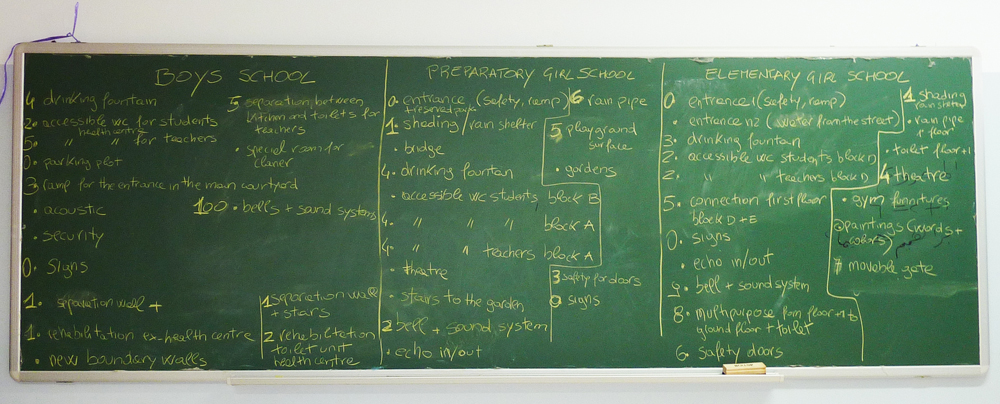 BOYS SCHOOL
4 drinking fountain
2. accessible wc for students
health centre
5. " " for teachers
0. parking plot
3 ramp for the entrance in the main courtyard
. acoustic
. security
0. signs
1. separation wall +
1. rehabilitation ex-health centre
. new boundary walls
5 separation between
kitchen and toilets for
teachers
. special room for
claner
100. bells + sound systems
1 separation wall
+ stars
2 rehabilitation
toilet unit
health centre
PREPARATORY GIRL SCHOOL
0. entrance (safety, ramp)
1. shading/rain shelter
. bridge
4. drinking fountan
. accessible wc students block B
4. " " " block A
4. " " teachers block A
. theatre
. stairs to the garden
2 bell + sound system
. echo in/out
6 rain pipe
5 playground
surface
. gardens
3 safety for doors
0 signs
ELEMENTARY GIRL SCHOOL
0 entrance1 (safety, ramp)
. entrance n2 (water from the street)
3. drinking fountain
2. accessible wc students block D
2. " " teachers block D
5. connection first floor
block D + E
0. signs
. echo in/out
9. bell + sound system
8. multipurpose from floor+1 to
ground floor + toilet
6. safety doors
1 shading
rain shelter
. rain pipe
floor
. toilet floor+1
4 theatre
. gym furnitures
paintings (words +
colors)
7 movable gate